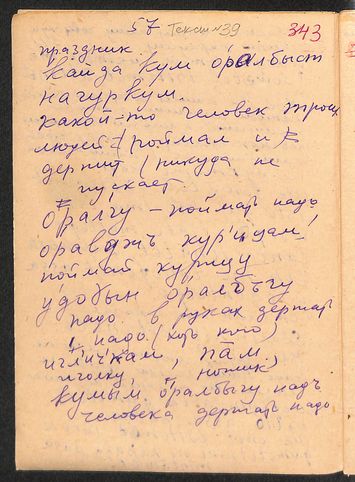 57 Текст №39 343
праздник
кайда кум оралбыст
начуркум.
какой-то человек троих
людей поймал и
держит (никуда не
пускает.
о̄ралгу – поймать надо
оравджъ кур'ицам!
поймай курицу
удобын оралбъгу
надо в руках держать
надо (хоть кого)
игл'ичкам, па̄м.
иголку, ножик,
кумым оралбыгу надъ
человека держать надо